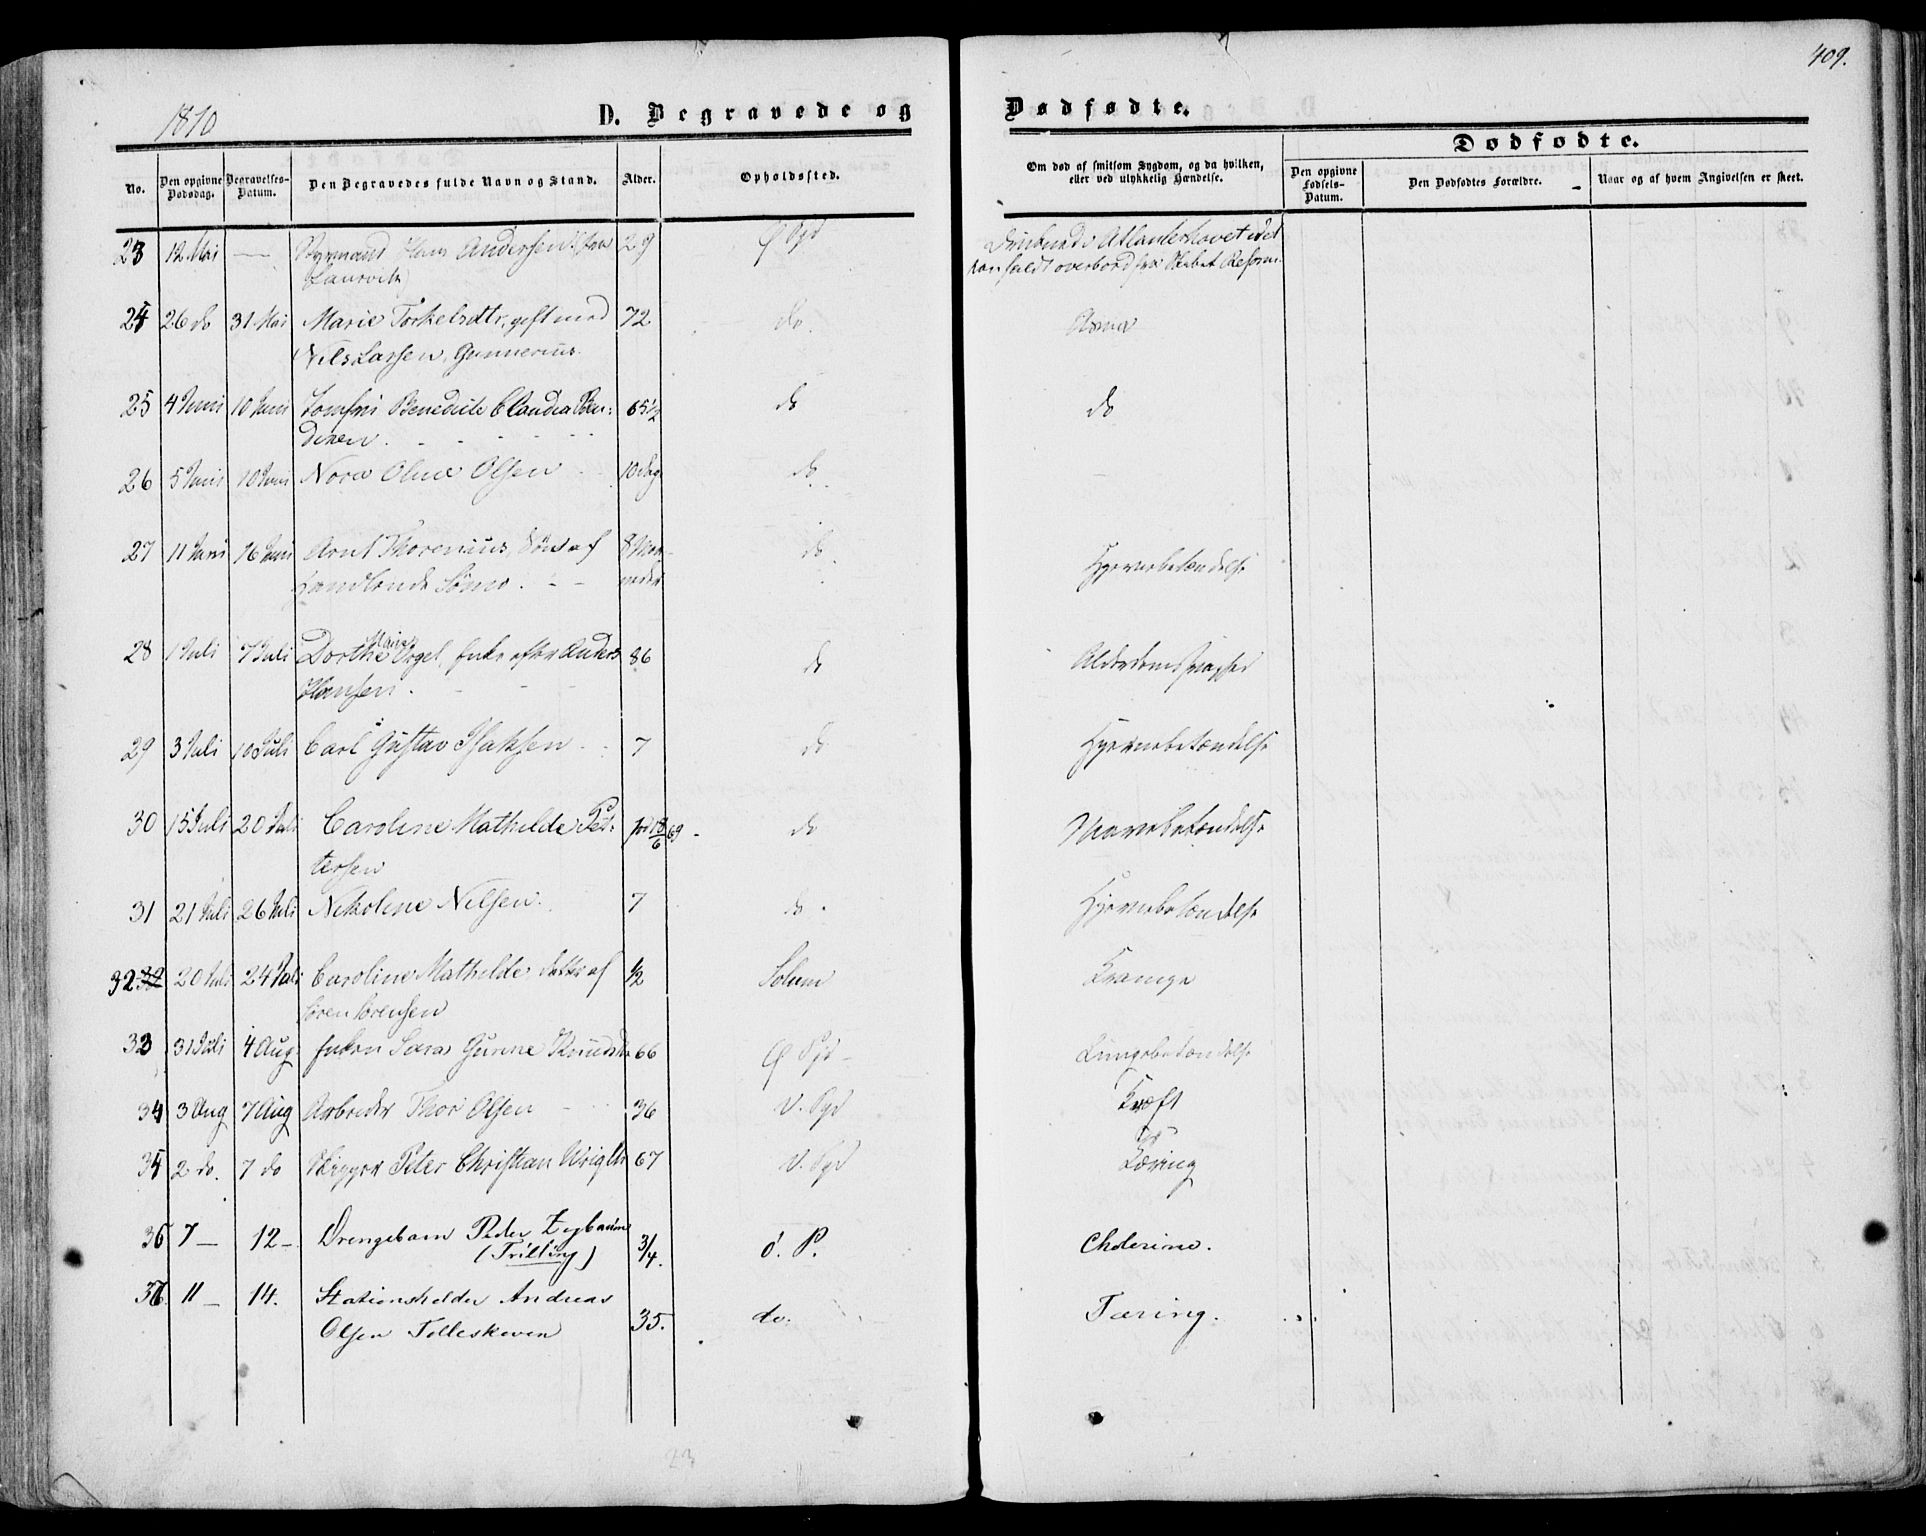 409.
1870
D. Begravede og Dødfødte.
Dødfødte.
No.
Den opgivne Dødsdag.
Begravelses-Datum.
Den Begravedes fulde Navn og Stand.
Alder.
Opholdssted.
Om død af smitsom Sygdom, og da hvilken, eller ved ulykkelig Hændelse.
Den opgivne Fødsels-Datum.
Den Dødfødtes Forældre.
Naar og af hvem Angivelsen er skeet.
23 12 Mai — Styrmand Hans Andersen (fra 29 Ø Pgd Atlanterhavet idet
Laurvik) han faldt overbord fra Skibet Reform
24 26 do 31 Mai Marie Torkelsdtr, gift med 72 do.
Nils Larsen, Gunnerius.
25 4 Juni 10 Juni Jomfru Benedicte Claudia Ben- 65½ do do
dixen.
26 5 Juni 10 Juni Nora Oline Olsen 10 Dag do
27 11 Juni 16 Juni Arnt Thorenius, Søn af 8 Maa- do Hjernebetændelse
neder
28 1 Juli 7 Juli Dorthe Marie Orgel, Enke efter Anders 86 do Alderdomssvaghed
Hansen.
29 3 Juli 10 Juli Carl Gustav Isaksen 7 do Hjernebetændelse
30 15 Juli 20 Juli Caroline Mathilde Pet- 18/6 69 do
tersen
31 21 Juli 26 Juli Nikoline Nilsen. 7 do. Hjernebetændelse
32 32 20 Juli 24 Juli Caroline Mathilde Datter af ½ Solum Krampe
Søren Sørensen
33 31 Juli 4 Aug Enken Sara Gunne Knudsdtr 66 Ø Pgd Lungebetændelse
34 3 Aug 7 Aug Arbeider Thor Olsen 36 V. Pgd Kræft
35 2 do. 7 do Skipper Peter Christian Wrigth 67 V. Pgd Tæring
36 7 — 12 — Drengebarn Peder Zegbaum 3/4. Ø. P. Cholerine.
(Trilling)
37 11 — 14. Stationsholder Andreas 35. do. Tæring.
Olsen Tolleskeven
23